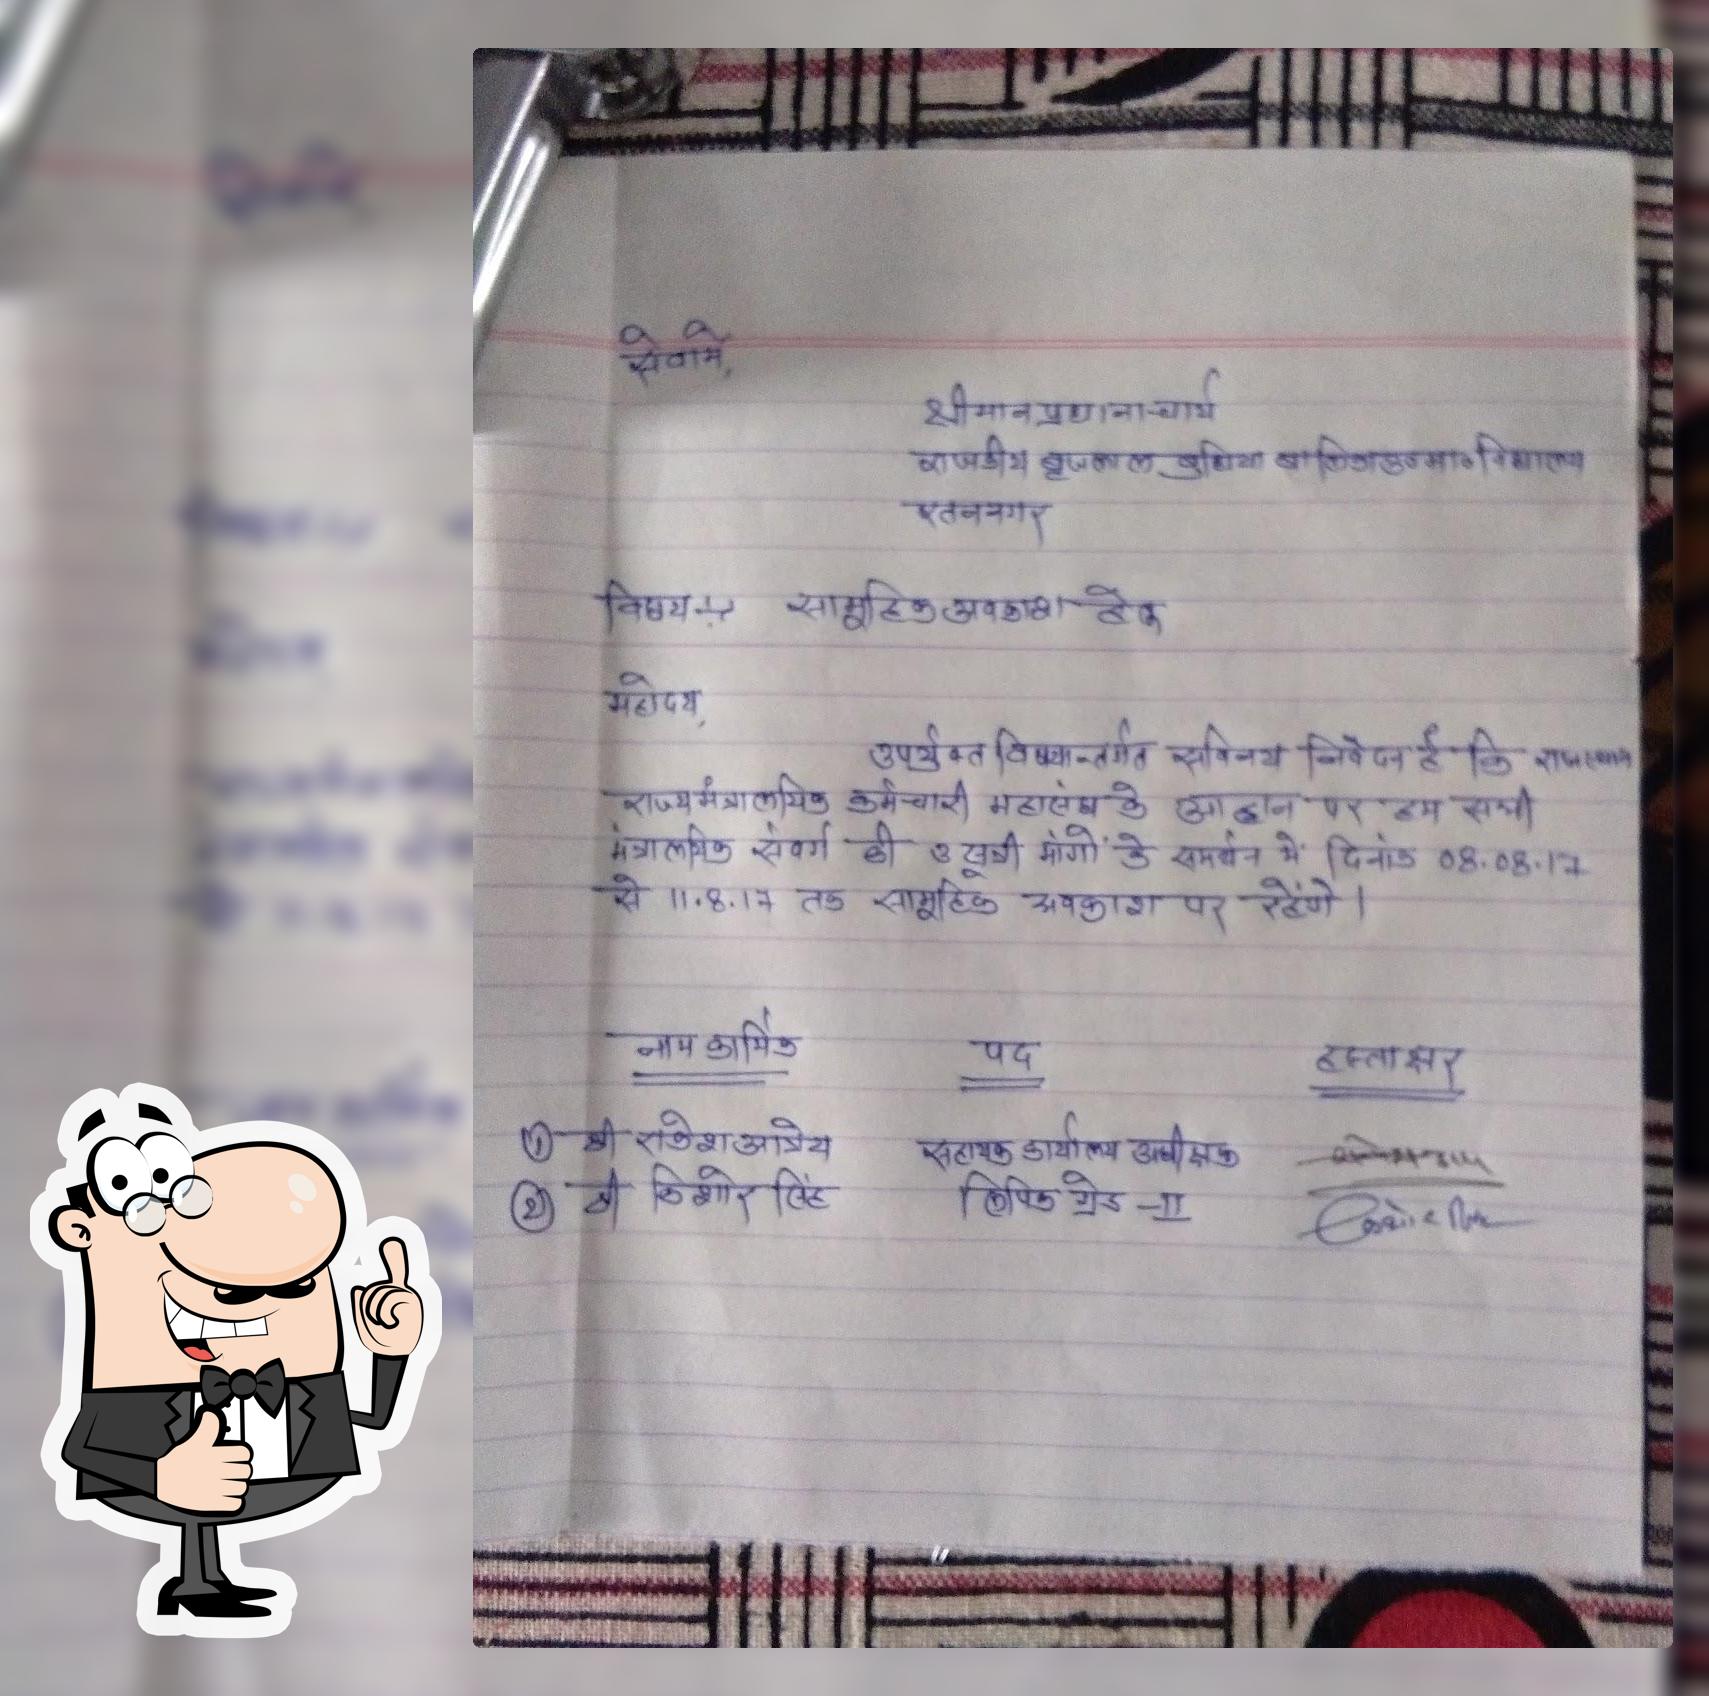 सेवामे,
श्रीमान प्रधानाचार्य
राजकीय बृजलाल बुधिया बालिका उ०मा० विद्यालय
रतननगर
विषय:- सामूहिक अवकाश हेतु
महोदय,
उपर्युक्त विषयान्तर्गत सविनय निवेदन है कि राजस्थान
राज्य मंत्रालयिक कर्मचारी महासंघ के आह्वान पर हम सभी
मंत्रालयिक संवर्ग की ७ सूत्री मांगों के समर्थन में दिनांक 08.08.17
से 11.8.17 तक सामूहिक अवकाश पर रहेंगे।
नाम कार्मिक पद हस्ताक्षर
(१) श्री राकेश आत्रेय सहायक कार्यालय अधीक्षक
(२) श्री किशोर सिंह लिपिक ग्रेड -II किशोर सिंह